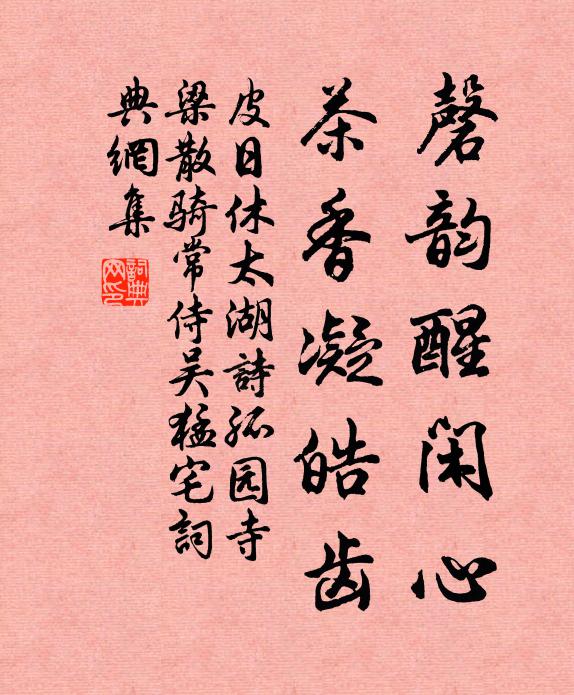 磬韵醒闲心
茶香凝皓齿
皮日休太湖詩孤园寺
梁散骑常侍吴猛宅詞
典網集
詞典网印